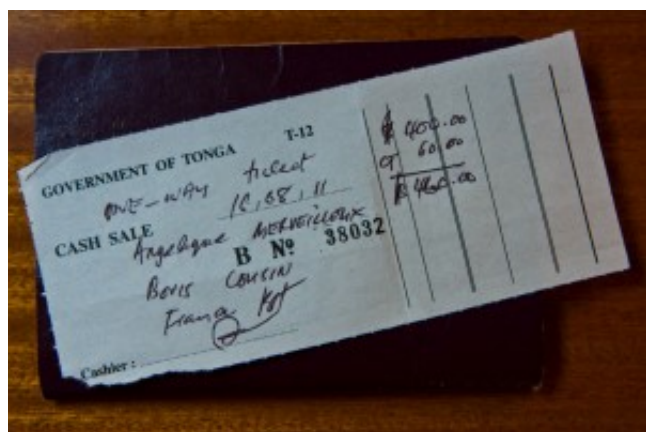 T-12
GOVERNMENT OF TONGA
ONE-WAY ticket
16.08.11
CASH SALE
Angelique MERVEILLEUX
B Nº 38032
Boris COUSIN
France
Cashier :
$ 400.00
60.00
$ 460.00